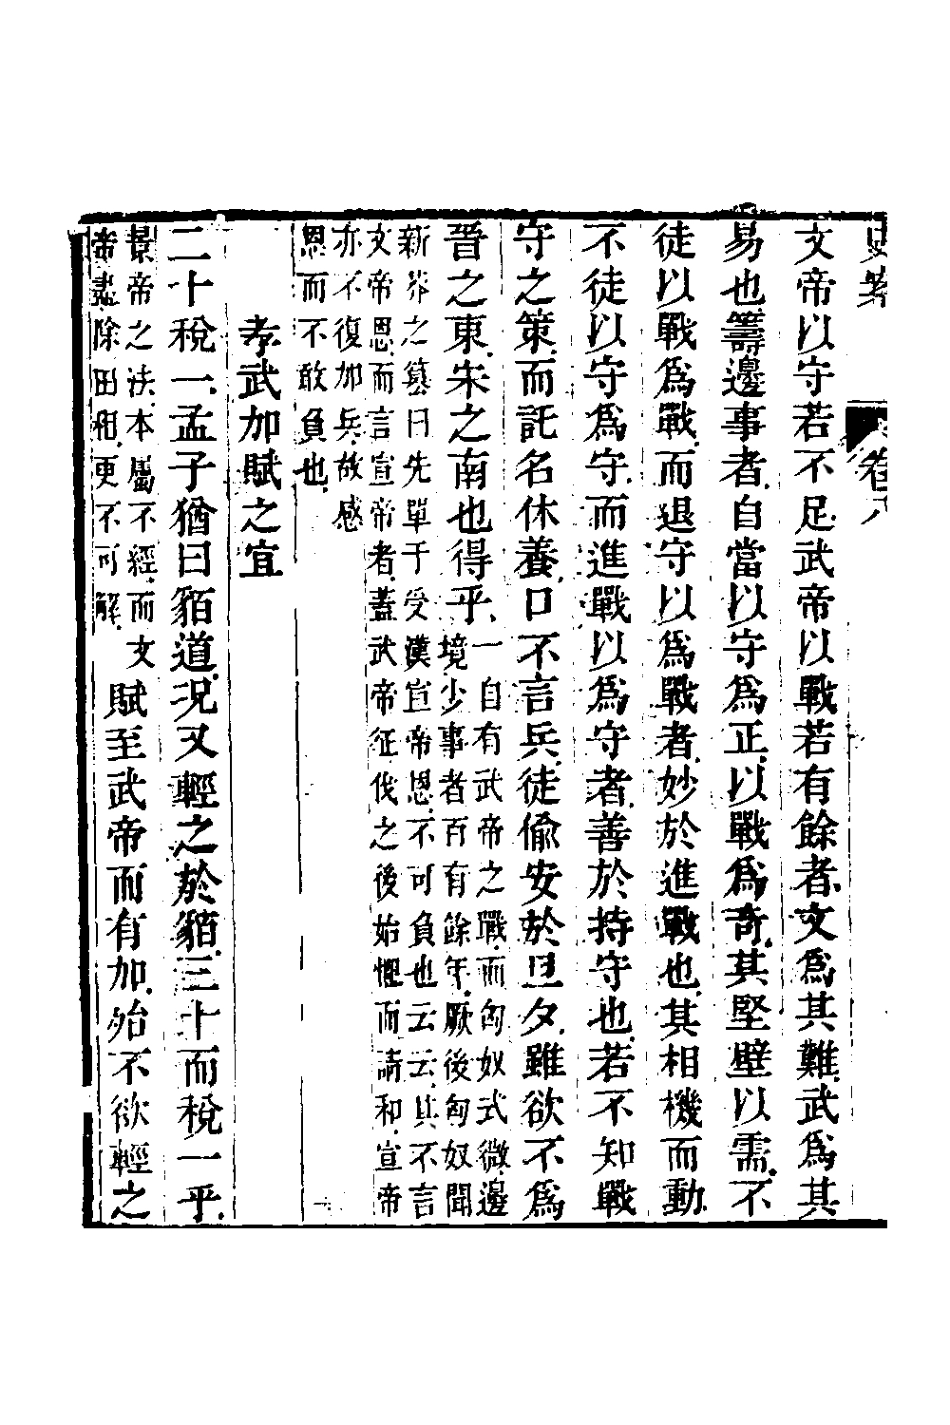 史案 卷八
文帝以守若不足武帝以戰若有餘者文爲其難武爲其
易也籌邊事者自當以守爲正以戰爲奇其堅壁以需不
徒以戰爲戰而退守以爲戰者妙於進戰也其相機而動
不徒以守爲守而進戰以爲守者善於持守也若不知戰
守之策而託名休養口不言兵徒偷安於旦夕雖欲不爲
晉之東宋之南也得乎
一自有武帝之戰而匈奴式微邊
境少事者百有餘年厥後匈奴聞
新莽之篡曰先單于受漢宣帝恩不可負也云云其不言
文帝恩而言宣帝者蓋武帝征伐之後始懼而請和宣帝
亦不復加兵故感
恩而不敢負也
孝武加賦之宜
二十稅一孟子猶曰貊道况又輕之於貊三十而稅一乎
景帝之法本屬不經而文
帝盡除田租更不可解
賦至武帝而有加殆不欲輕之